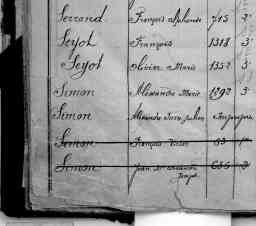 Serrand François Alphonse 715 2e
Seyot François 1318 3e
Seyot Olivier Marie 1352 3e
Simon Alexandre Marie 1292 3e
Simon Alexandre Jules Julien
Simon François Victor 93
Simon Jean Joseph 636 3e